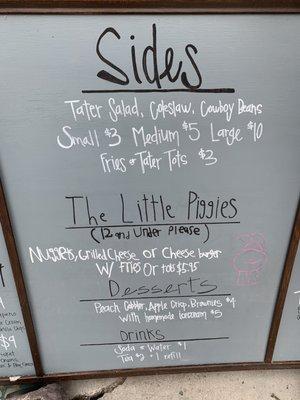 Sides
Tater Salad, Coleslaw, Cowboy Beans
Small $3 Medium $5 Large $10
Fries or Tater Tots $3
The Little Piggies
(12 and Under Please)
Nuggets, Grilled Cheese or Cheese burger
w/ Fries Or tots $5.95
Desserts
Peach Cobbler, Apple Crisp, Brownies $4
with homemade Icecream $5
Drinks
Soda + Water $1
Tea $2 + 1 refill
$9